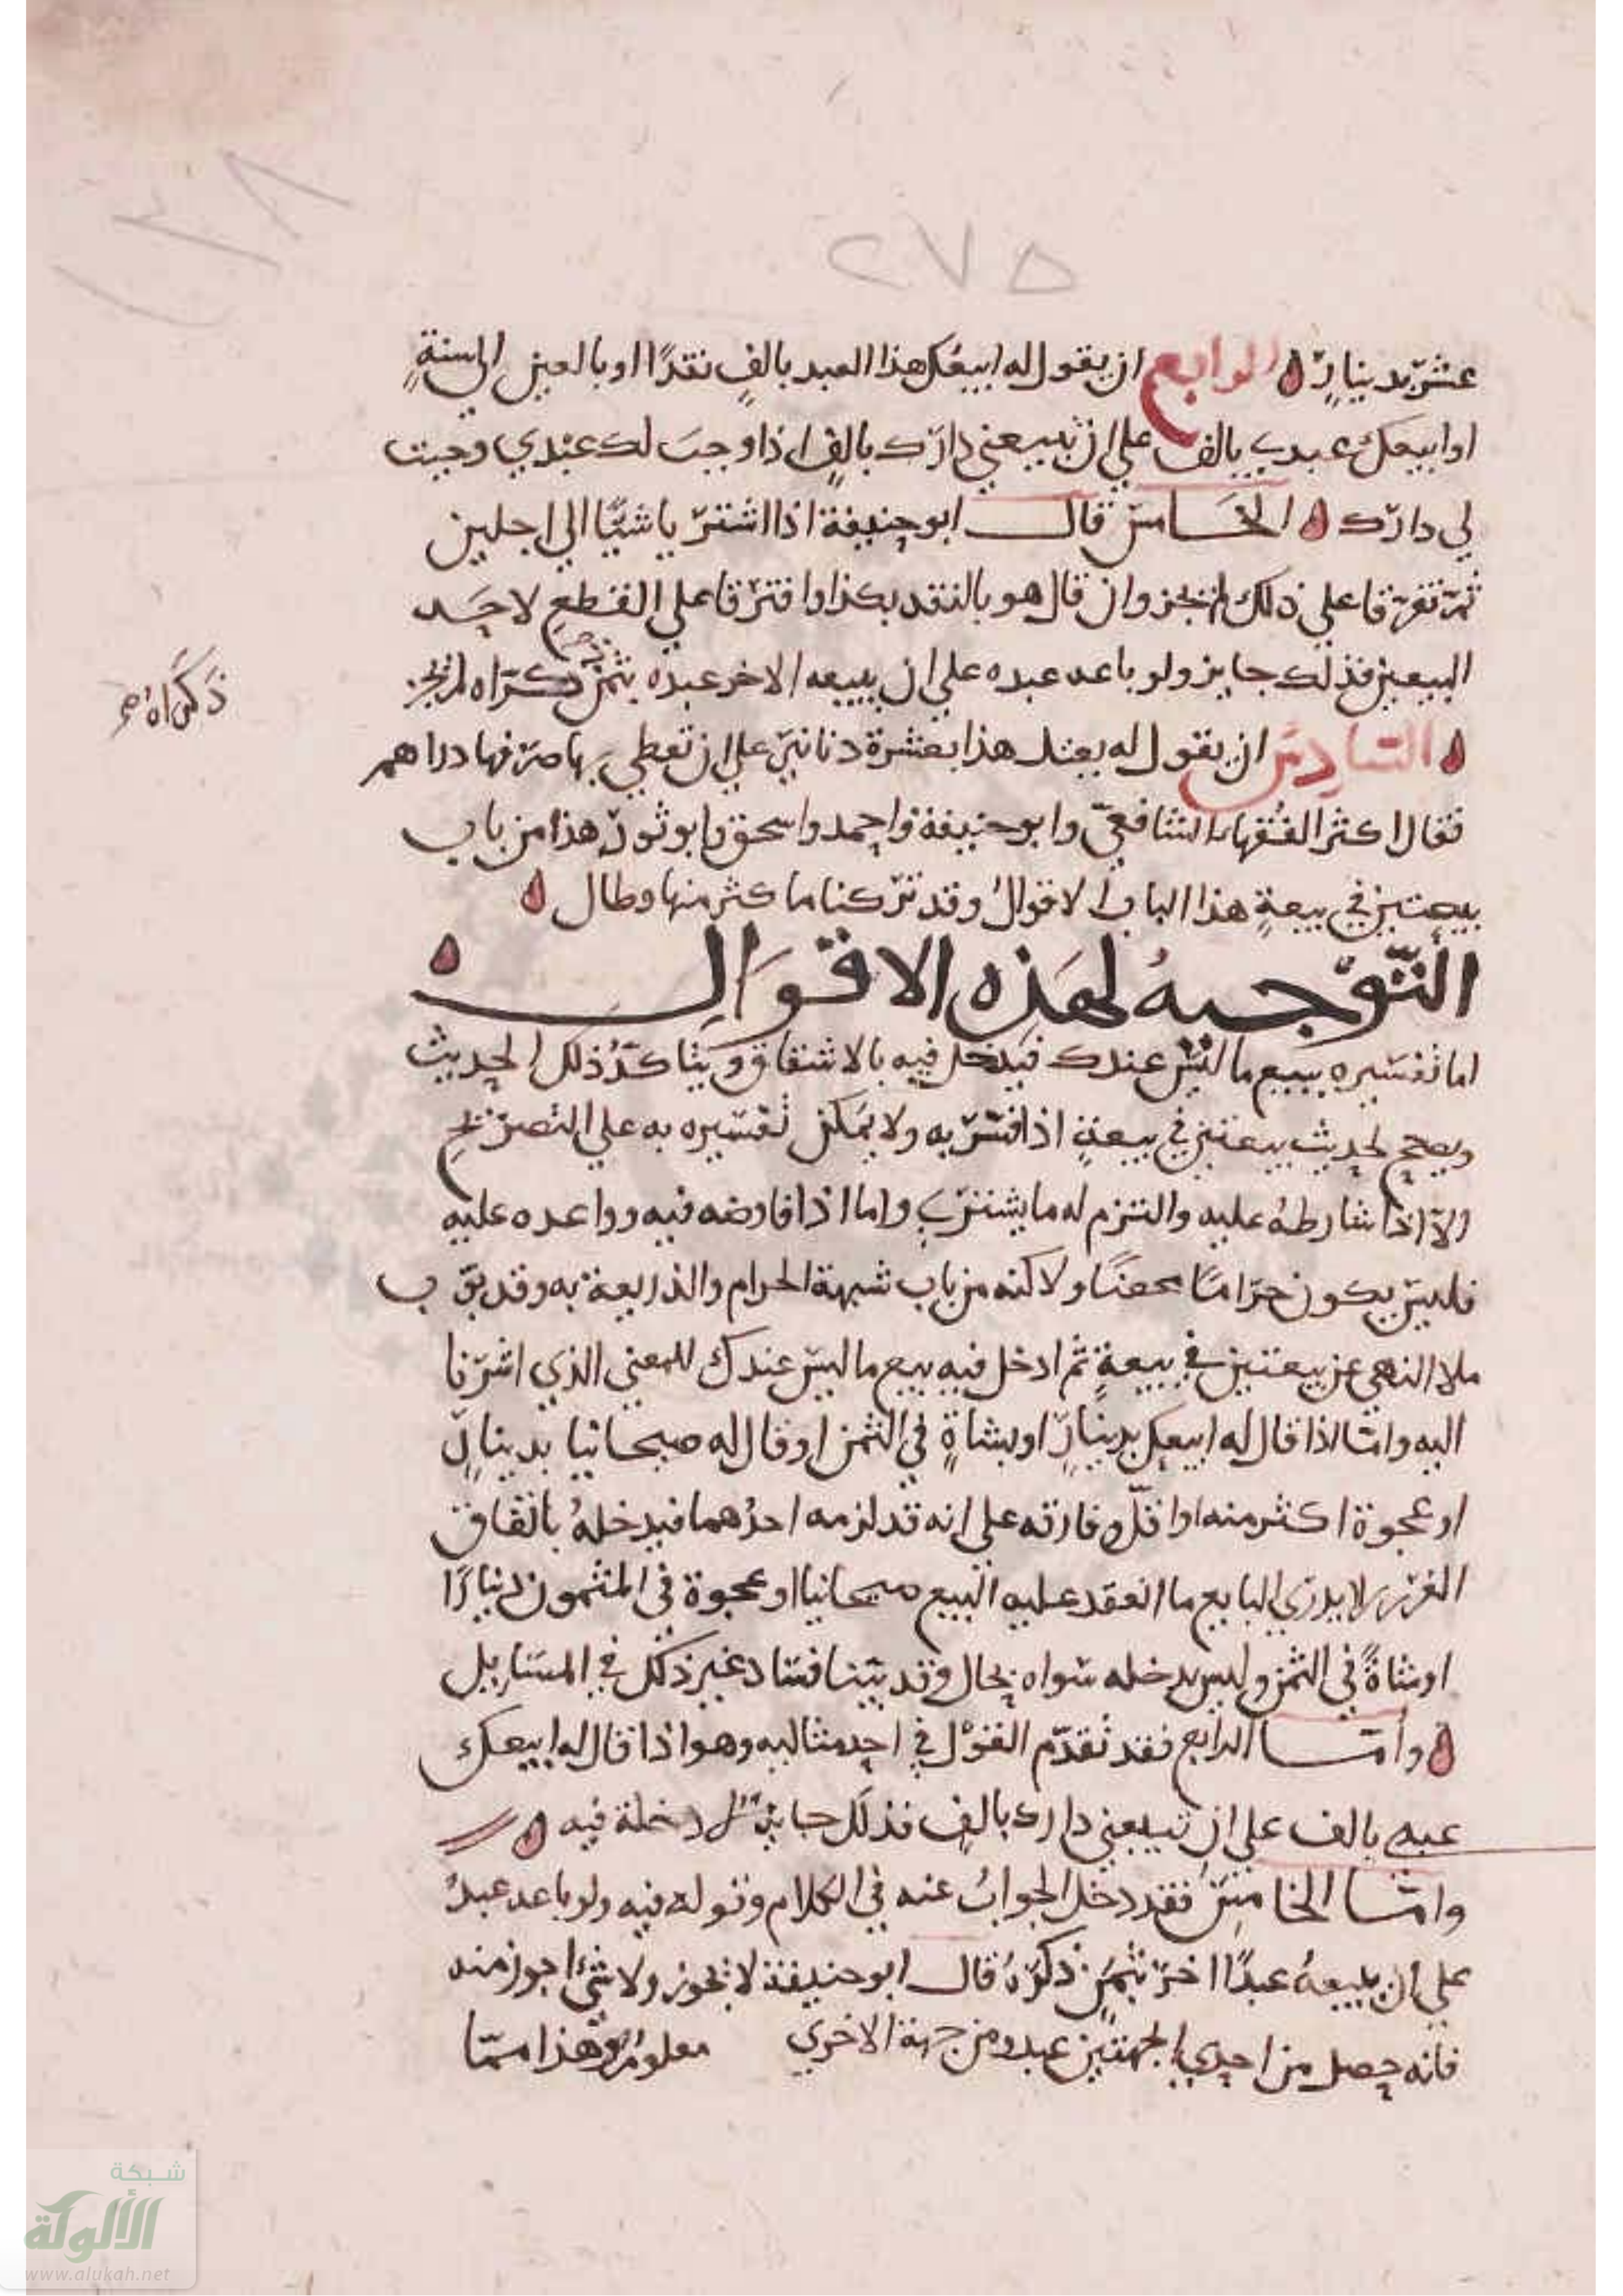 ١٣٨
٢٧٥
عشر بدينارٍ ه الرابع ان يقول له ابيعك هذا العبد بالفٍ نقدًا او بالفين الى سنةٍ
او ابيعك عبدي بالف علي ان تبيعني دارك بالفٍ اذا وجبَ لك عبْدي وجبت
لي دارك ه الخامس قال ابو حنيفة اذا اشتريا شيًا الي اجلين
ثم تفرقا علي ذلك لم يجز وان قال هو بالنقد بكذا وافترقا علي القطعِ لاحد
البيعين فذلك جايز ولو باعه عبده علي ان يبيعه الاخر عبده بثمن ذكراه لم يجز
ذكراه صح
ه السادس ان يقول له بعتك هذا بعشرة دنانير علي ان تعطي بها صرفها دراهم
فقال اكثر الفقهاء الشافعي وابو حنيفة واحمد واسحق وابو ثور هذا من باب
بيعتين في بيعةٍ هذا الباب الاقوالُ وقد تركنا ما كثر منها وطال ه
التَّوْجيهُ لهَذِه الاقوَالِ ه
اما تفسيره ببيع ما ليس عندك فيدخل فيه بالاشتقاق ويتاكدُ ذلك الحديث
ويصح لحديث بيعتين في بيعةٍ اذا فسر به ولا يمكن تفسيره به علي التصريحِ
الا اذا شارطهُ عليه والتزم له ما يشتري واما اذا فاوضه فيه وواعده عليه
فليس يكون حرامًا محضًا ولاكنه من باب شبهة الحرام والذريعة به وقد بوب
ملا النهي عن بيعتين في بيعةٍ ثم ادخل فيه بيع ما ليس عندك للمعني الذي اشرنا
اليه واما اذا قال له ابيعك بدينارٍ او بشاةٍ في الثمن او قال له صيحانيا بدينارٍ
او عجوة اكثر منه او اقلَّ وفارقه علي انه قد لزمه احدُهما فيدخلهُ باتفاق
الغرر لا يدري البايع ما انعقد عليه البيع صيحانيا او عجوة في المثمون دينارًا
او شاةً في الثمن وليس يدخله سواه بحال وقد بيّنا فساد غير ذلك في المسايل
ه وأما الرابع فقد تقدّم القوْل في احد مثاليه وهو اذا قال له ابيعك
عبدي بالف علي ان تبيعني دارك بالفٍ فذلك جايز دخلة فيه ه
واما الخامسُ فقد دخل الجوابُ عنه في الكلام وقوله فيه ولو باعه عبدهُ
علي ان يبيعهُ عبدًا اخر بثمنٍ ذكرهُ قال ابو حنيفة لا يجوز ولا شئ اجوز منه
فانه حصل من احدي الجهتين عبد ومن جهة الاخري معلومٌ وهذا ممّا
شبكة
الألوكة
www.alukah.net